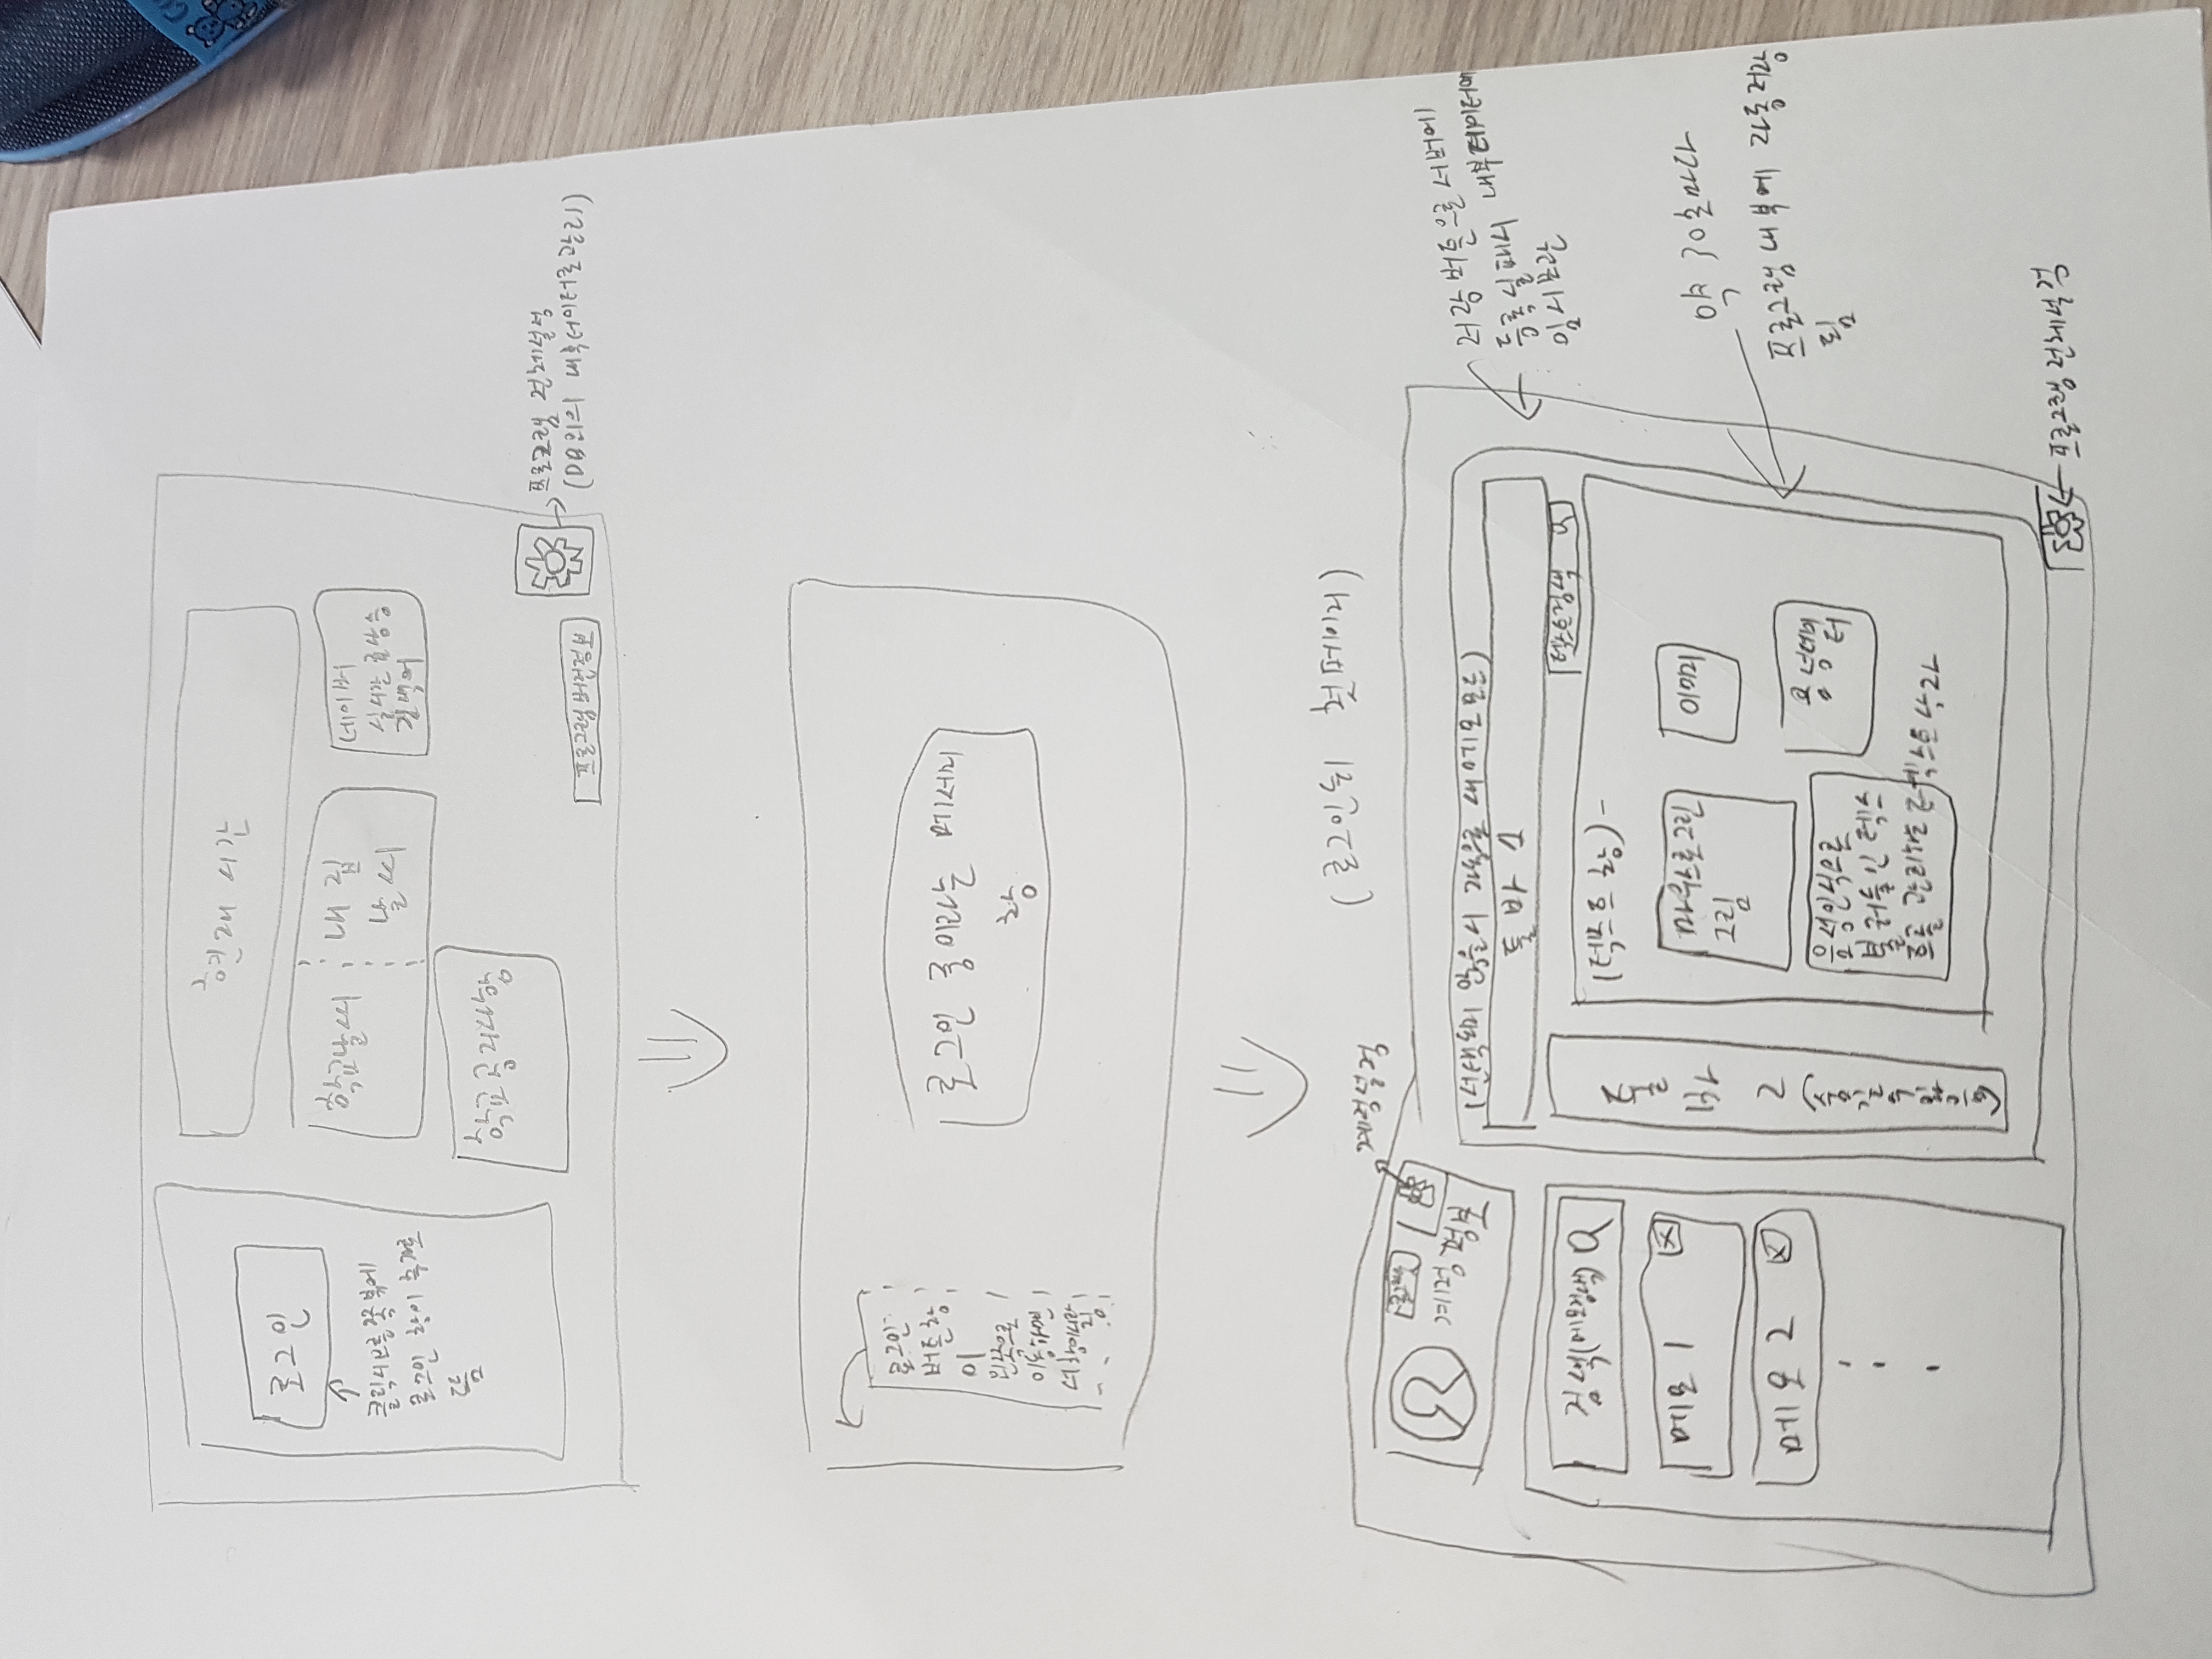 현재 시간
로그인
클릭시 오른쪽 북에
로그인 창이 추가로
뜸
학교날씨
내 집
날씨
네이버
실시간 급상승
검색어
학교공지사항
프로그램버전정보
프로그램 전체설정
(DB외의 내부데이터로관리)
로그인
버튼창
이
왼쪽으로
이동하면
서 창이사라
짐
로그인 중이라는 메세지
창
(로그인뒤 첫페이지)
계정설정
계정 정보
(선택되지 않을시 자동으로 새메모모드)
툴바 1
텍스트검색
검색(메모검색)
메모 1
메모 2
툴바 2 (숨길수있음)
(텍스트 창)-
마우스로그린
그림
이미지
음성데이
터
음성인식으로
불러들인 텍스
트를 관리하는 텍스트 상자
저장버튼으로 서버에
등록실패시 내부데이터에
임시보관
약 30초마다
프로그램 내부에 자동저장
됨
프로그램전체설정